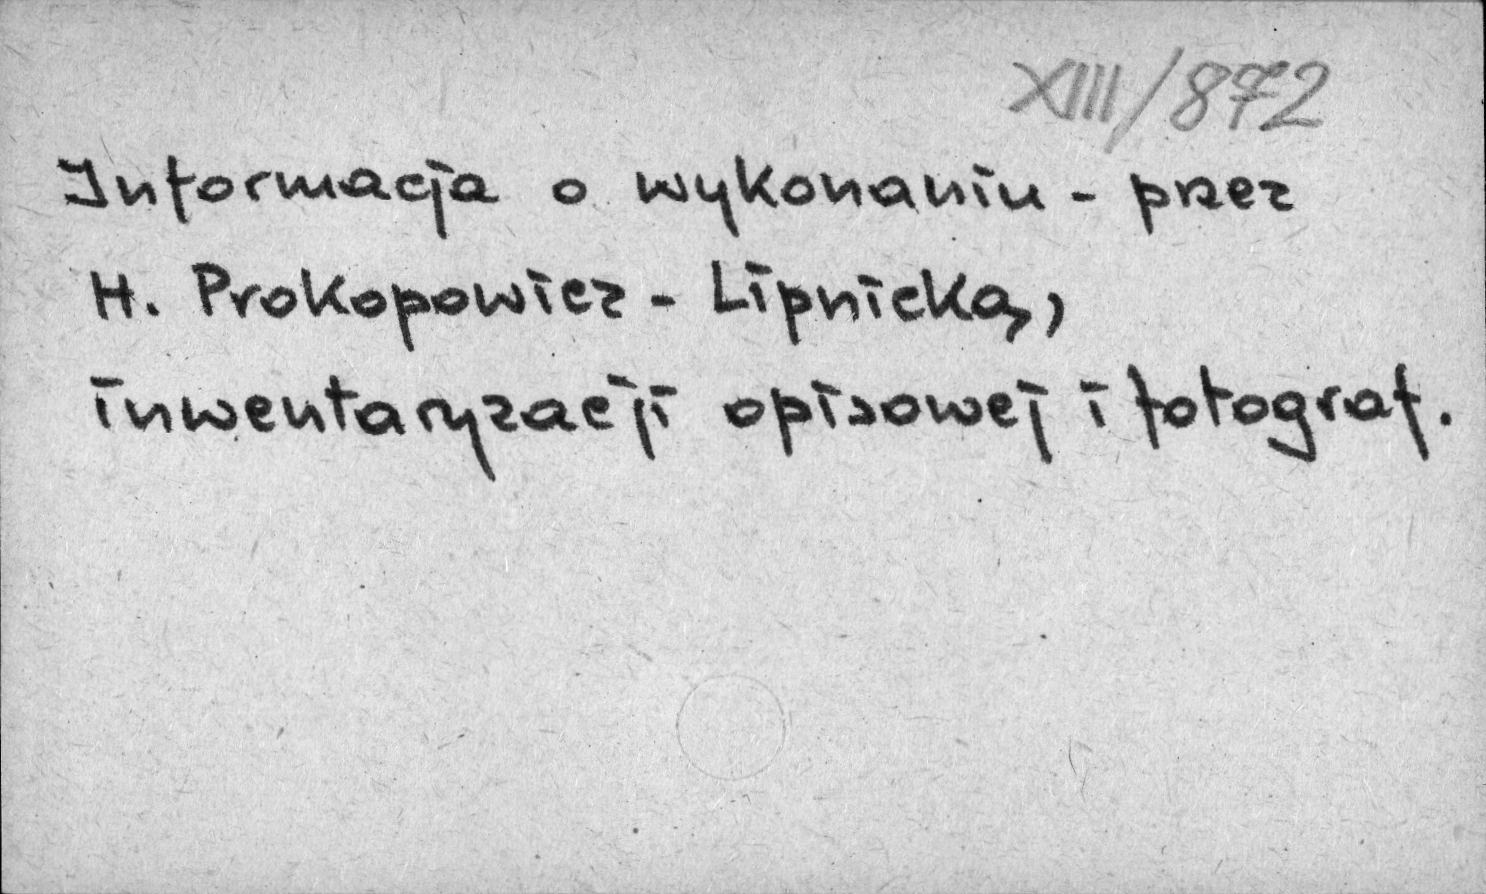 XIII/872
Informacja o wykonaniu - przez
H. Prokopowicz - Lipnicką,
inwentaryzacji opisowej i fotograf.